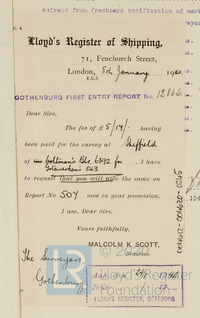 Extract from freeboard verification of
Lloyd's Register of Shipping,
71, Fenchurch Street,
London, 8th January 19
E.C.3.
GOTHENBURG FIRST ENTRY REPORT No. 12866.
Dear Sirs,
The fee of £5/14/- having
been paid for the survey at Sheffield
of Gottmans Blr. 6392 for
523, I have
to request that you will note the same on
Report No 504 now in your possession.
I am, Dear Sirs,
Yours faithfully,
MALCOLM K. SCOTT,
The Surveyors
Gothenburg
LLOYD'S REGISTER, GÖTEBORG
Lloyd's Register
Foundation